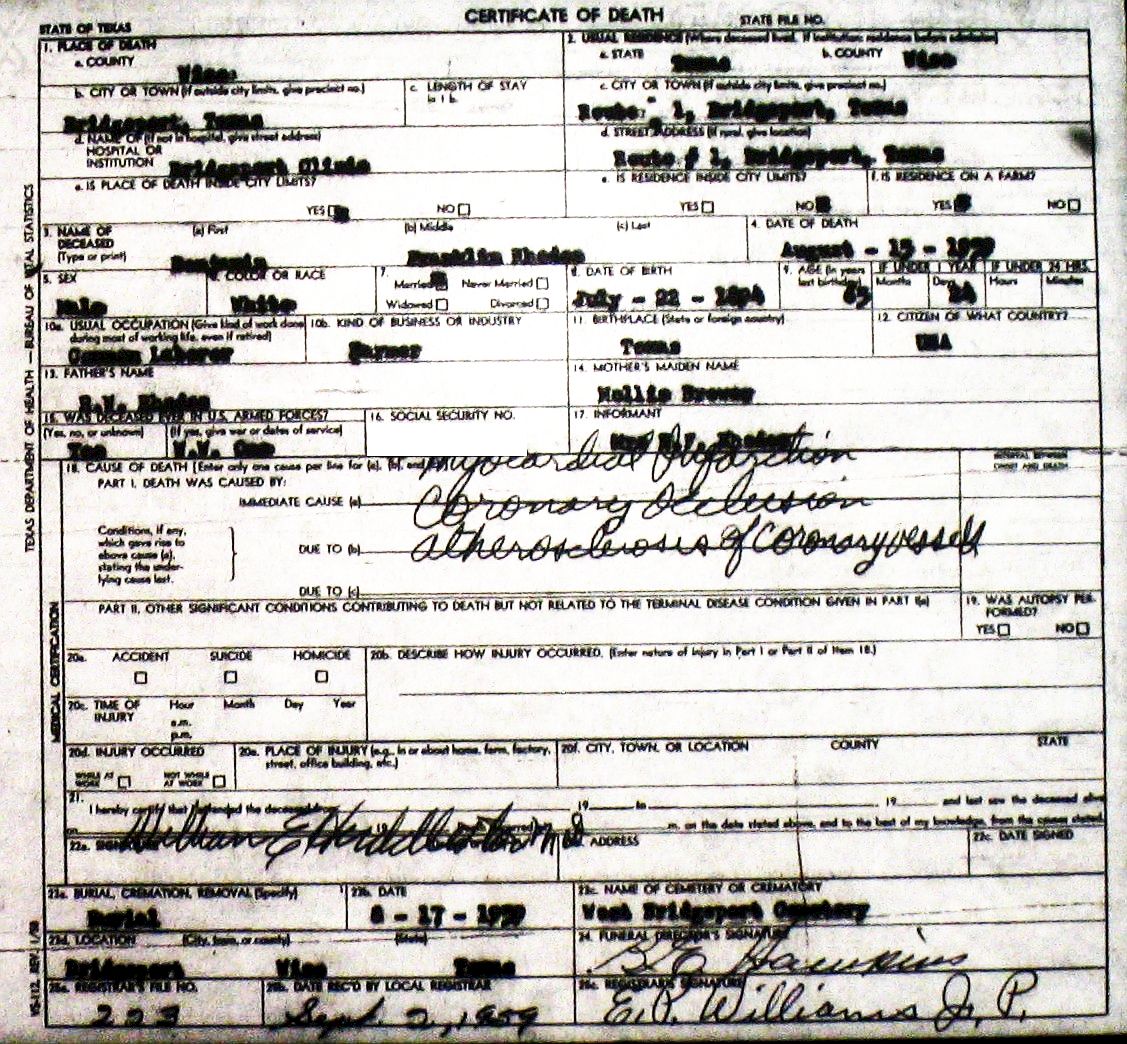 CERTIFICATE OF DEATH
STATE FILE NO.
STATE OF TEXAS
1. PLACE OF DEATH
a. COUNTY
Wise
2. USUAL RESIDENCE (Where deceased lived. If institution: residence before admission)
a. STATE
Texas
b. COUNTY
Wise
b. CITY OR TOWN (If outside city limits, give precinct no.)
Bridgeport, Texas
c. LENGTH OF STAY
in 1 b.
c. CITY OR TOWN (If outside city limits, give precinct no.)
Route 1, Bridgeport, Texas
d. NAME OF (If not in hospital, give street address)
HOSPITAL OR
INSTITUTION
Bridgeport Clinic
d. STREET ADDRESS (If rural, give location)
Route # 1, Bridgeport, Texas
e. IS PLACE OF DEATH INSIDE CITY LIMITS?
YES NO
e. IS RESIDENCE INSIDE CITY LIMITS?
YES NO
f. IS RESIDENCE ON A FARM?
YES NO
3. NAME OF
DECEASED
(Type or print)
(a) First
Benjamin
(b) Middle
Franklin
(c) Last
Rhodes
4. DATE OF DEATH
August - 15 - 1959
5. SEX
Male
6. COLOR OR RACE
White
7.
Married Never Married
Widowed Divorced
8. DATE OF BIRTH
July - 22 - 1894
9. AGE (In years
last birthday)
65
IF UNDER 1 YEAR
Months Days
24
IF UNDER 24 HRS.
Hours Minutes
10a. USUAL OCCUPATION (Give kind of work done
during most of working life, even if retired)
Common Laborer
10b. KIND OF BUSINESS OR INDUSTRY
Farmer
11. BIRTHPLACE (State or foreign country)
Texas
12. CITIZEN OF WHAT COUNTRY?
USA
13. FATHER'S NAME
Rhodes
14. MOTHER'S MAIDEN NAME
Mollie
15. WAS DECEASED EVER IN U.S. ARMED FORCES?
(Yes, no, or unknown)
Yes
(If yes, give war or dates of service)
W.W. One
16. SOCIAL SECURITY NO.
17. INFORMANT
Mrs Rhodes
18. CAUSE OF DEATH [Enter only one cause per line for (a), (b), and
INTERVAL BETWEEN
ONSET AND DEATH
PART I. DEATH WAS CAUSED BY:
Myocardial Infarction
IMMEDIATE CAUSE (a)
Coronary Occlusion
Conditions, if any,
which gave rise to
above cause (a),
stating the under-
lying cause last.
DUE TO (b)
Atherosclerosis of Coronary vessels
DUE TO (c)
PART II. OTHER SIGNIFICANT CONDITIONS CONTRIBUTING TO DEATH BUT NOT RELATED TO THE TERMINAL DISEASE CONDITION GIVEN IN PART I(a)
19. WAS AUTOPSY PER-
FORMED?
YES NO
20a. ACCIDENT SUICIDE HOMICIDE
20b. DESCRIBE HOW INJURY OCCURRED. (Enter nature of injury in Part I or Part II of item 18.)
20c. TIME OF
INJURY
Hour Month Day Year
a.m.
p.m.
20d. INJURY OCCURRED
WHILE AT
WORK
NOT WHILE
AT WORK
20e. PLACE OF INJURY (e.g., in or about home, farm, factory,
street, office building, etc.)
20f. CITY, TOWN, OR LOCATION COUNTY STATE
21.
I hereby certify that I attended the deceased
19 to 19 and last saw the deceased alive
on
m. on the date stated above, and to the best of my knowledge, from the causes stated.
22a. SIGNATURE
William E
ADDRESS
22c. DATE SIGNED
23a. BURIAL, CREMATION, REMOVAL (Specify)
Burial
23b. DATE
8 - 17 - 1959
23c. NAME OF CEMETERY OR CREMATORY
West Bridgeport Cemetery
23d. LOCATION (City, town, or county) (State)
Bridgeport Wise Texas
24. FUNERAL DIRECTOR'S SIGNATURE
Hawkins
25a. REGISTRAR'S FILE NO.
223
25b. DATE REC'D BY LOCAL REGISTRAR
Sept. 2, 1959
25c. REGISTRAR'S SIGNATURE
E.P. Williams J. P.
TEXAS DEPARTMENT OF HEALTH — BUREAU OF VITAL STATISTICS
MEDICAL CERTIFICATION
VS-112, REV. 1/58